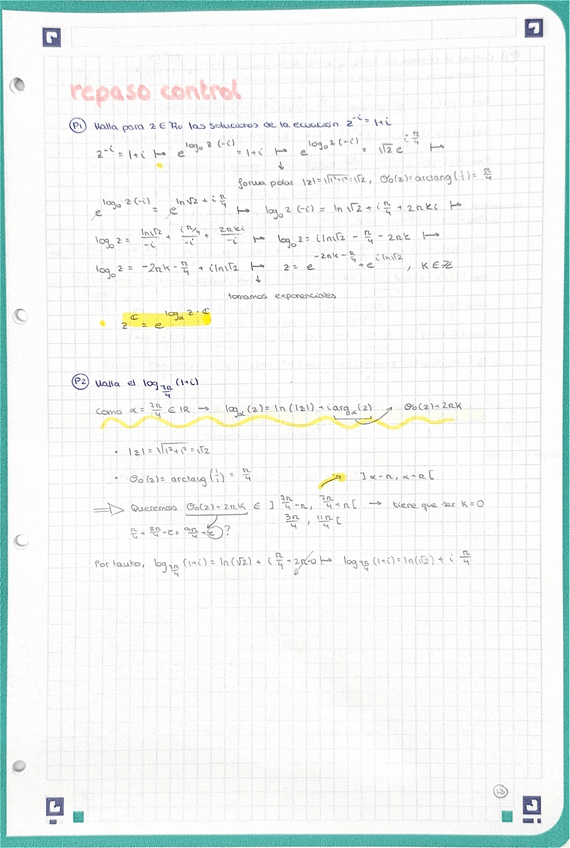 repaso control
P1 Halla para z ∈ H₀ las soluciones de la ecuación z^{-i} = 1+i
z^{-i} = 1+i ↦ e^{log₀ z (-i)} = 1+i ↦ e^{log₀ z (-i)} = √2 e^{i π/4} ↦
↓
forma polar |z| = √(1²+1²) = √2, Θ₀(z) = arctang(1/1) = π/4
e^{log₀ z (-i)} = e^{ln√2 + i π/4} ↦ log₀ z (-i) = ln √2 + i π/4 + 2πki ↦
log₀ z = ln√2/-i + iπ/4/-i + 2πki/-i ↦ log₀ z = i ln√2 - π/4 - 2πk ↦
log₀ z = -2πk - π/4 + i ln√2 ↦ z = e^{-2πk - π/4} + e^{i ln√2}, K ∈ ℤ
↓
tomamos exponenciales
• z^ℂ = e^{log_α z · ℂ}
P2 Halla el log_{7π/4} (1+i)
Como α = 7π/4 ∈ ℝ → log_α(z) = ln(|z|) + i arg_α(z) → Θ₀(z) + 2πk
• |z| = √(1²+1²) = √2
• Θ₀(z) = arctang(1/1) = π/4
] α-π, α+π [
⇒ Queremos Θ₀(z) + 2πk ∈ ] 7π/4 - π, 7π/4 + π [ → tiene que ser K=0
3π/4, 11π/4 [
Por tanto, log_{7π/4} (1+i) = ln(√2) + i π/4 + 2π·0 ↦ log_{7π/4} (1+i) = ln(√2) + i π/4
13